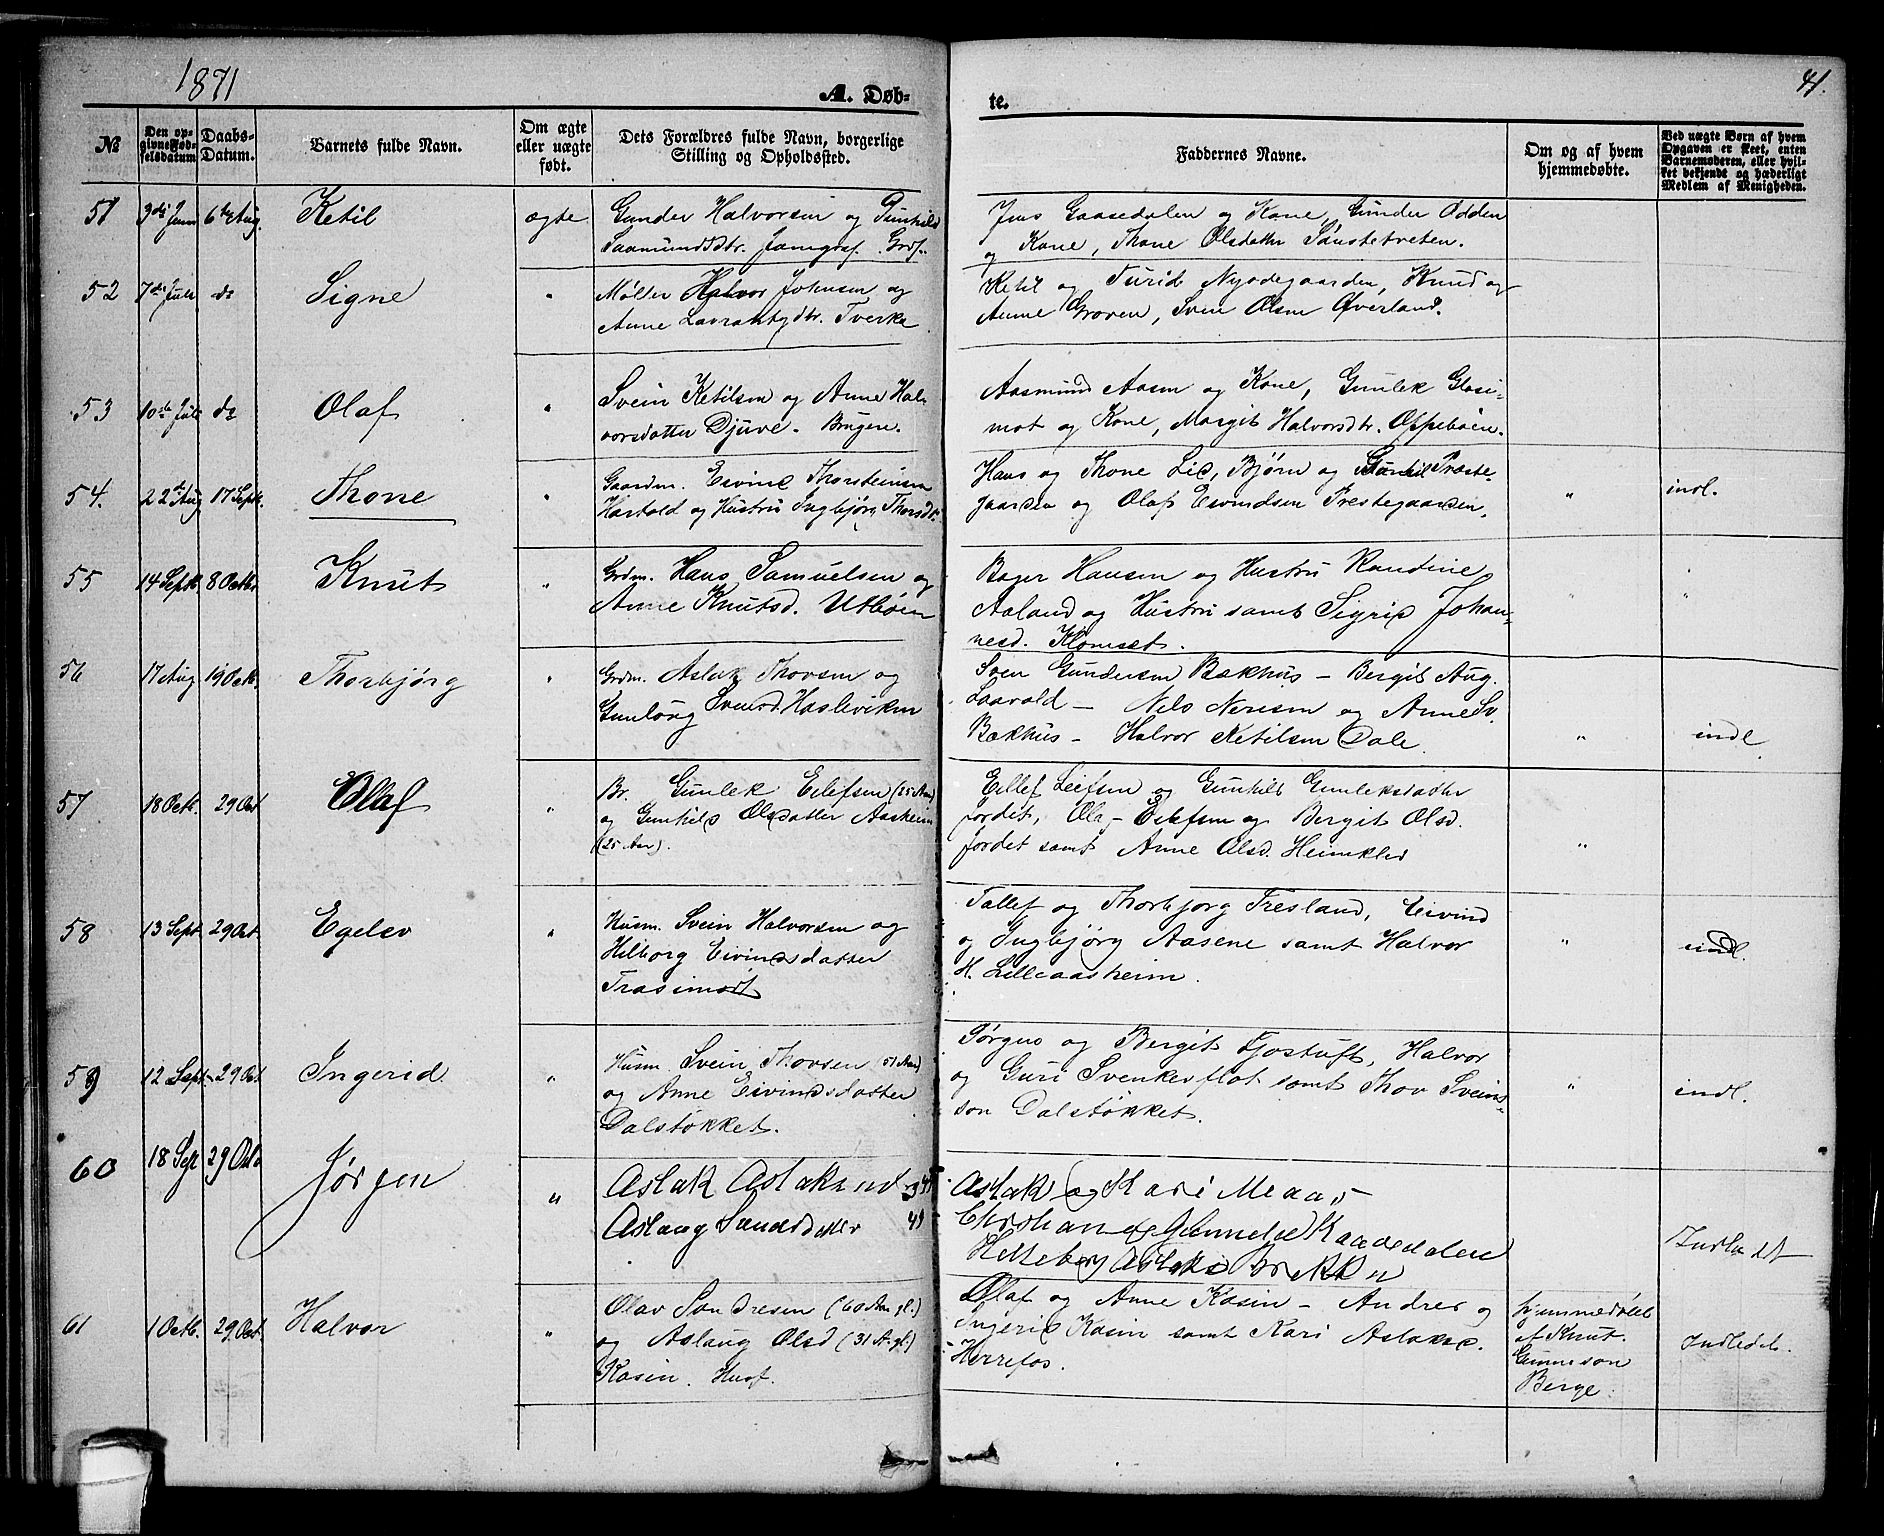 1871
A. Døb-
te.
41.
№
Den op-
givne Fød-
selsdatum
Daabs-
Datum.
Barnets fulde Navn.
Om ægte
eller uægte
født.
Dets Forældres fulde Navn, borgerlige
Stilling og Opholdssted.
Faddernes Navne.
Om og af hvem
hjemmedøbte.
Ved uægte Børn af hvem
Opgaven er skeet, enten
Barnemoderen, eller hvil-
ket bekjendt og hæderligt
Medlem af Menigheden.
51 3die Juni 6te Aug. Ketil ægte
Gunder Halvorsen og Gunhild
Saamundsdtr.
Jens Gaasedalen og Kone, Gunder Odden
og Kone, Thone Olsdattr
52 7de Juli do Signe "
Møller Halvor Johnsen og
Anne Tverka
Ketil og Turid Nyodegaarden, Knud og
Anne Groven, Sven Olsen Øverland.
53 10de Juli do Olaf "
Svein Ketilsen og Anne Hal-
vorsdatter Djuve. Brugere.
Aasmund Aasen og Kone, Gunlek Glosi-
mot og Kone, Margit Halvorsdtr. Oppebøen.
54. 22de Aug 17 Septb. Thone "
Gaardm. Eivind Thorsteinsen
Hartold og Hustru Ingebjørg Thorsd.
Hans og Thone Lid, Bjørn og Gunhil Præste-
gaarden og Olaf Eivindsen Prestegaarden,
" indl.
55 14 Septb. 8 Octbr. Knut "
Grdm. Hans Samuelsen og
Anne Knutsd. Utbøen
Hansen og Hustru Randine
Aaland og Hustru samt Sigrid Johan-
nesd. Klomset.
" "
56 17 Aug 19 Octb. Thorbjørg "
Grdm. Aslak Thovsen og
Gunlaug Svensd. Hasleviken
Sven Gundersen Bækhus - Bergit Aug.
Laavald - Nils Nerisen og Anne Sv.
Bækhus - Halvor Ketilsen Dale.
" indl
57 18 Octb. 29 Oct Olaf "
Br. Gunlek Eilefsen (25 Aar)
og Gunhild Olsdatter Aasheim
(25 Aar).
Eillef Leifsen og Gunhild Gunleksdatter
Jordet, Ola Eilefsen og Bergit Olsd.
Jordet samt Anne Olsd. Heimklev
"
58 13 Sept. 29 Oct. Egelev "
Husm. Svein Halvorsen og
Hilborg Eivindsdatter
Trasimot
Tallef og Thorbjørg Tresland, Eivind
og Ingebjørg Aasene samt Halvor
H. Lilleaasheim.
" indl.
59 12 Sept. 29 Oct Ingerid "
Husm. Svein Thovsen (51 Aar)
og Anne Eivindsdatter
Dalstøkket.
Jørgen og Bergit Fjostuft, Halvor
og Guri Svenkesflot samt Thov Sveins-
son Dalstøkket.
" indl.
60 18 Sept 29 Octb Jørgen "
Aslak Aslaksen
Aslaug Sunddatter 41
Aslak og Kari
Christian og Gunnild
Brekken
Indladt
61 1 Octb. 29 Oct. Halvor "
Olav Sondresen (60 Aar gl.)
og Aslaug Olsd (31 A. gl.)
Kasin. Husf.
Olaf og Anne Kasin - Andres og
Ingerid Kasin samt Kari Aslaksd.
Herrefos.
hjemmedøbt
af Knut
Gunneson
Berge.